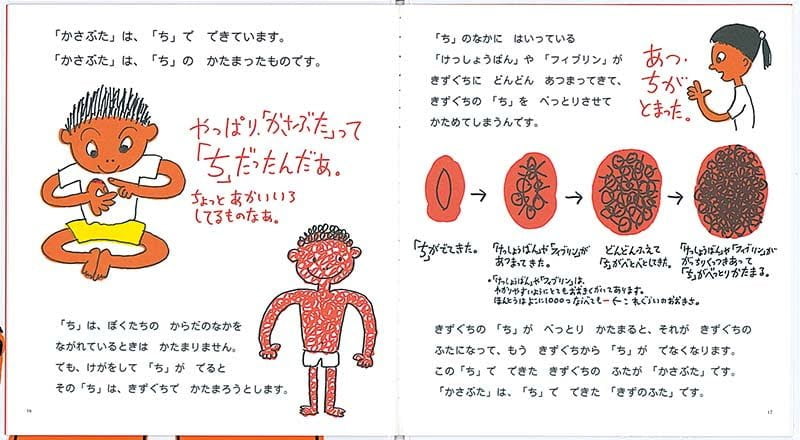 「かさぶた」は、「ち」で できています。
「かさぶた」は、「ち」の かたまったものです。
やっぱり、「かさぶた」って
「ち」だったんだあ。
ちょっと あかいいろ
してるものなあ。
「ち」は、ぼくたちの からだのなかを
ながれているときは かたまりません。
でも、けがをして 「ち」が でると
その「ち」は、きずぐちで かたまろうとします。
16
「ち」のなかに はいっている
「けっしょうばん」や 「フィブリン」が
きずぐちに どんどん あつまってきて、
きずぐちの 「ち」を べっとりさせて
かためてしまうんです。
あっ・
ちが
とまった。
「ち」がでてきた。
「けっしょうばん」や「フィブリン」が
あつまってきた。
どんどんふえて
「ち」がべとべとしてきた。
「けっしょうばん」や「フィブリン」が
がっちりくっつきあって
「ち」がべっとりかたまる。
•「けっしょうばん」や「フィブリン」は、
わかりやすいようにとてもおおきくかいてあります。
ほんとうはよこに1000つなべても ← これぐらいのおおきさ。
きずぐちの 「ち」が べっとり かたまると、それが きずぐちの
ふたになって、もう きずぐちから 「ち」が でなくなります。
この「ち」で できた きずぐちの ふたが 「かさぶた」です。
「かさぶた」は、「ち」で できた 「きずのふた」です。
17